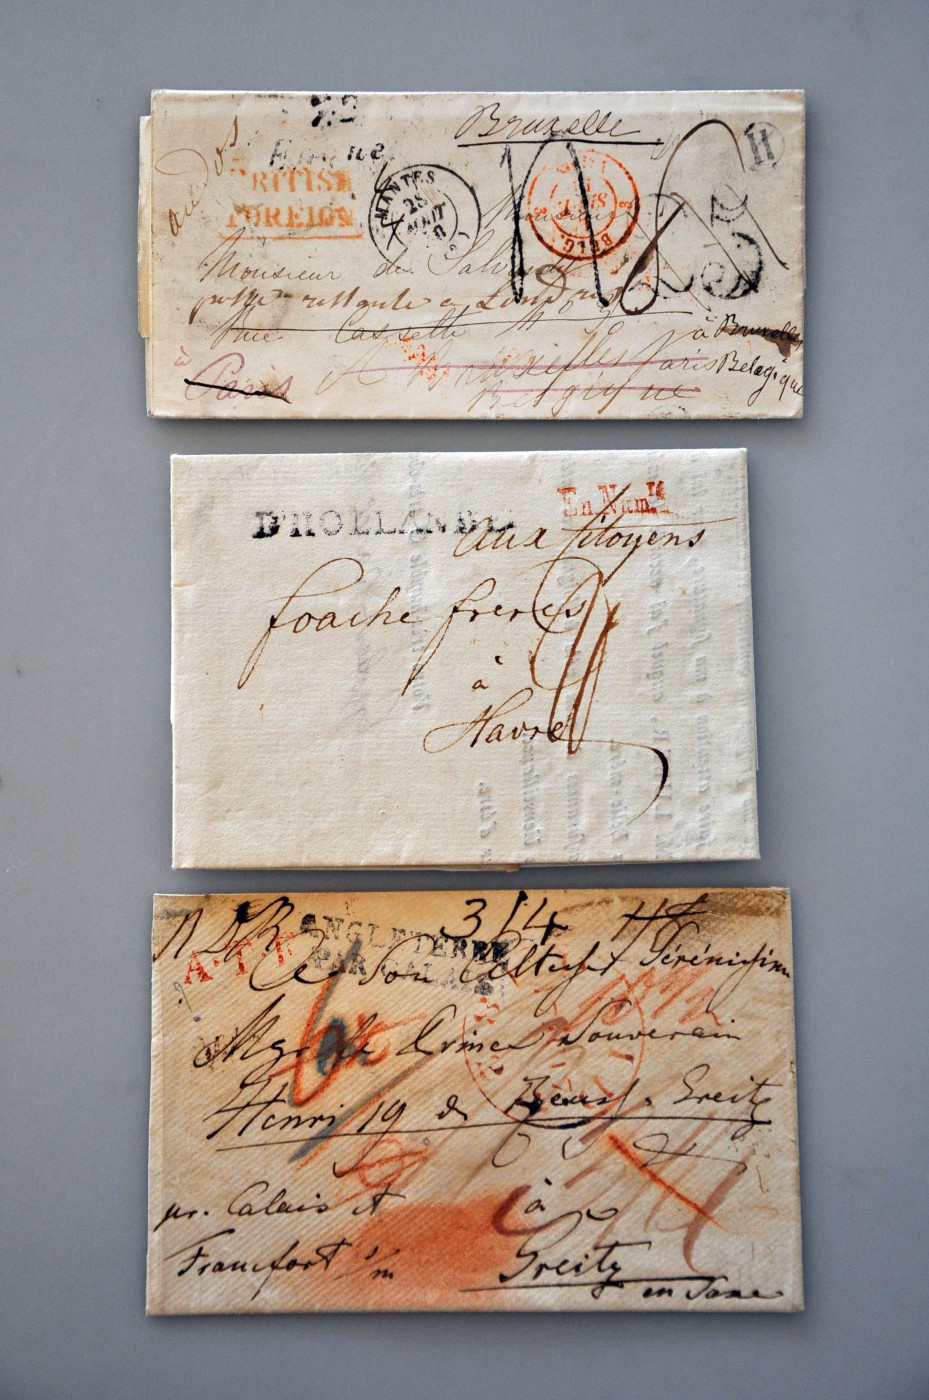 Bruxelle
au dos
BRITISH
FOREIGN
MANTES
28
AOUT
BELG.
H
Monsieur
Monsieur de Salvandy
poste restante a Londres
Rue Cassette
à Bruxelles
à Paris
Bruxelles Paris
Belgique
Belgique
D'HOLLANDE
En Num.re
aux Citoyens
foache freres
à
Havre
3/4
ANGLETERRE
PAR CALAIS
A.T.F
A Son Altesse Sérénissime
Mgr le Prince Souverain
Henri 19 de Reuss-Greitz
pr. Calais et à
Francfort s/m Greitz
en Saxe